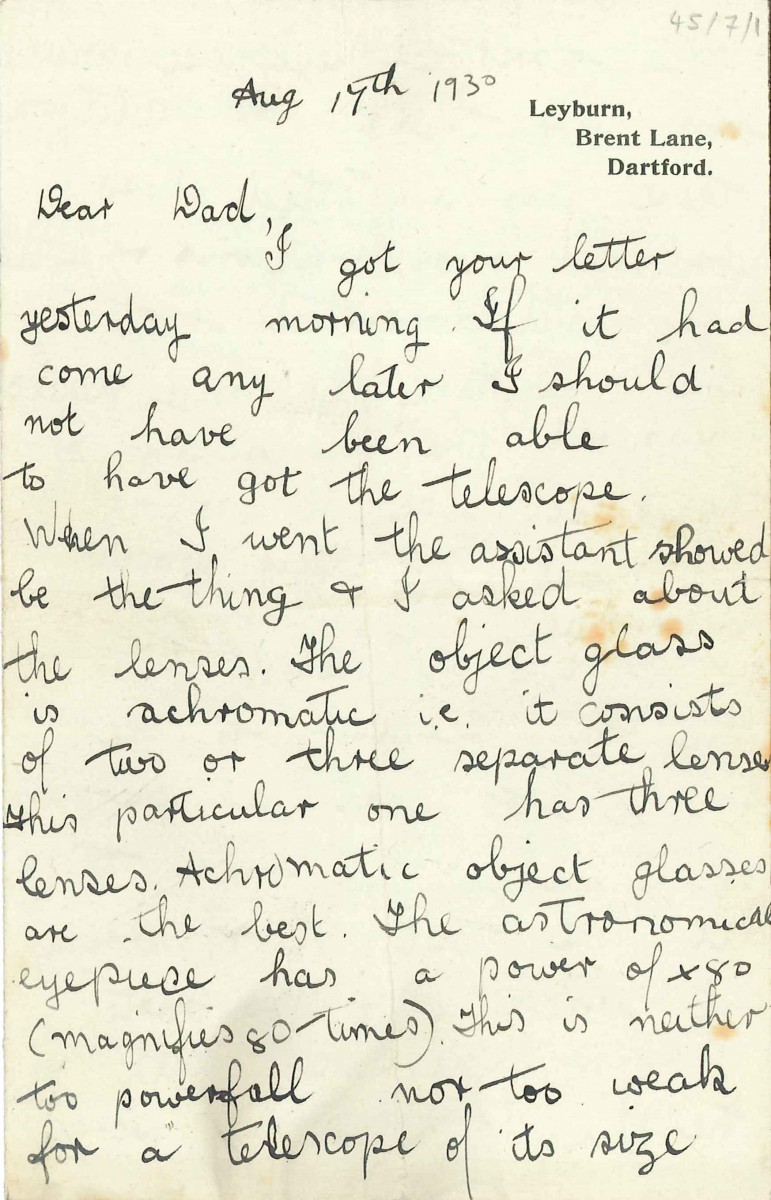 45/7/1
Aug 17th 1930
Leyburn,
Brent Lane,
Dartford.
Dear Dad,
I got your letter
yesterday morning. If it had
come any later I should
not have been able
to have got the telescope.
When I went the assistant showed
be the thing & I asked about
the lenses. The object glass
is achromatic i.e. it consists
of two or three separate lenses
This particular one has three
lenses. Achromatic object glasses
are the best. The astronomical
eyepiece has a power of x80
(magnifies 80 times). This is neither
too powerfull nor too weak
for a telescope of its size